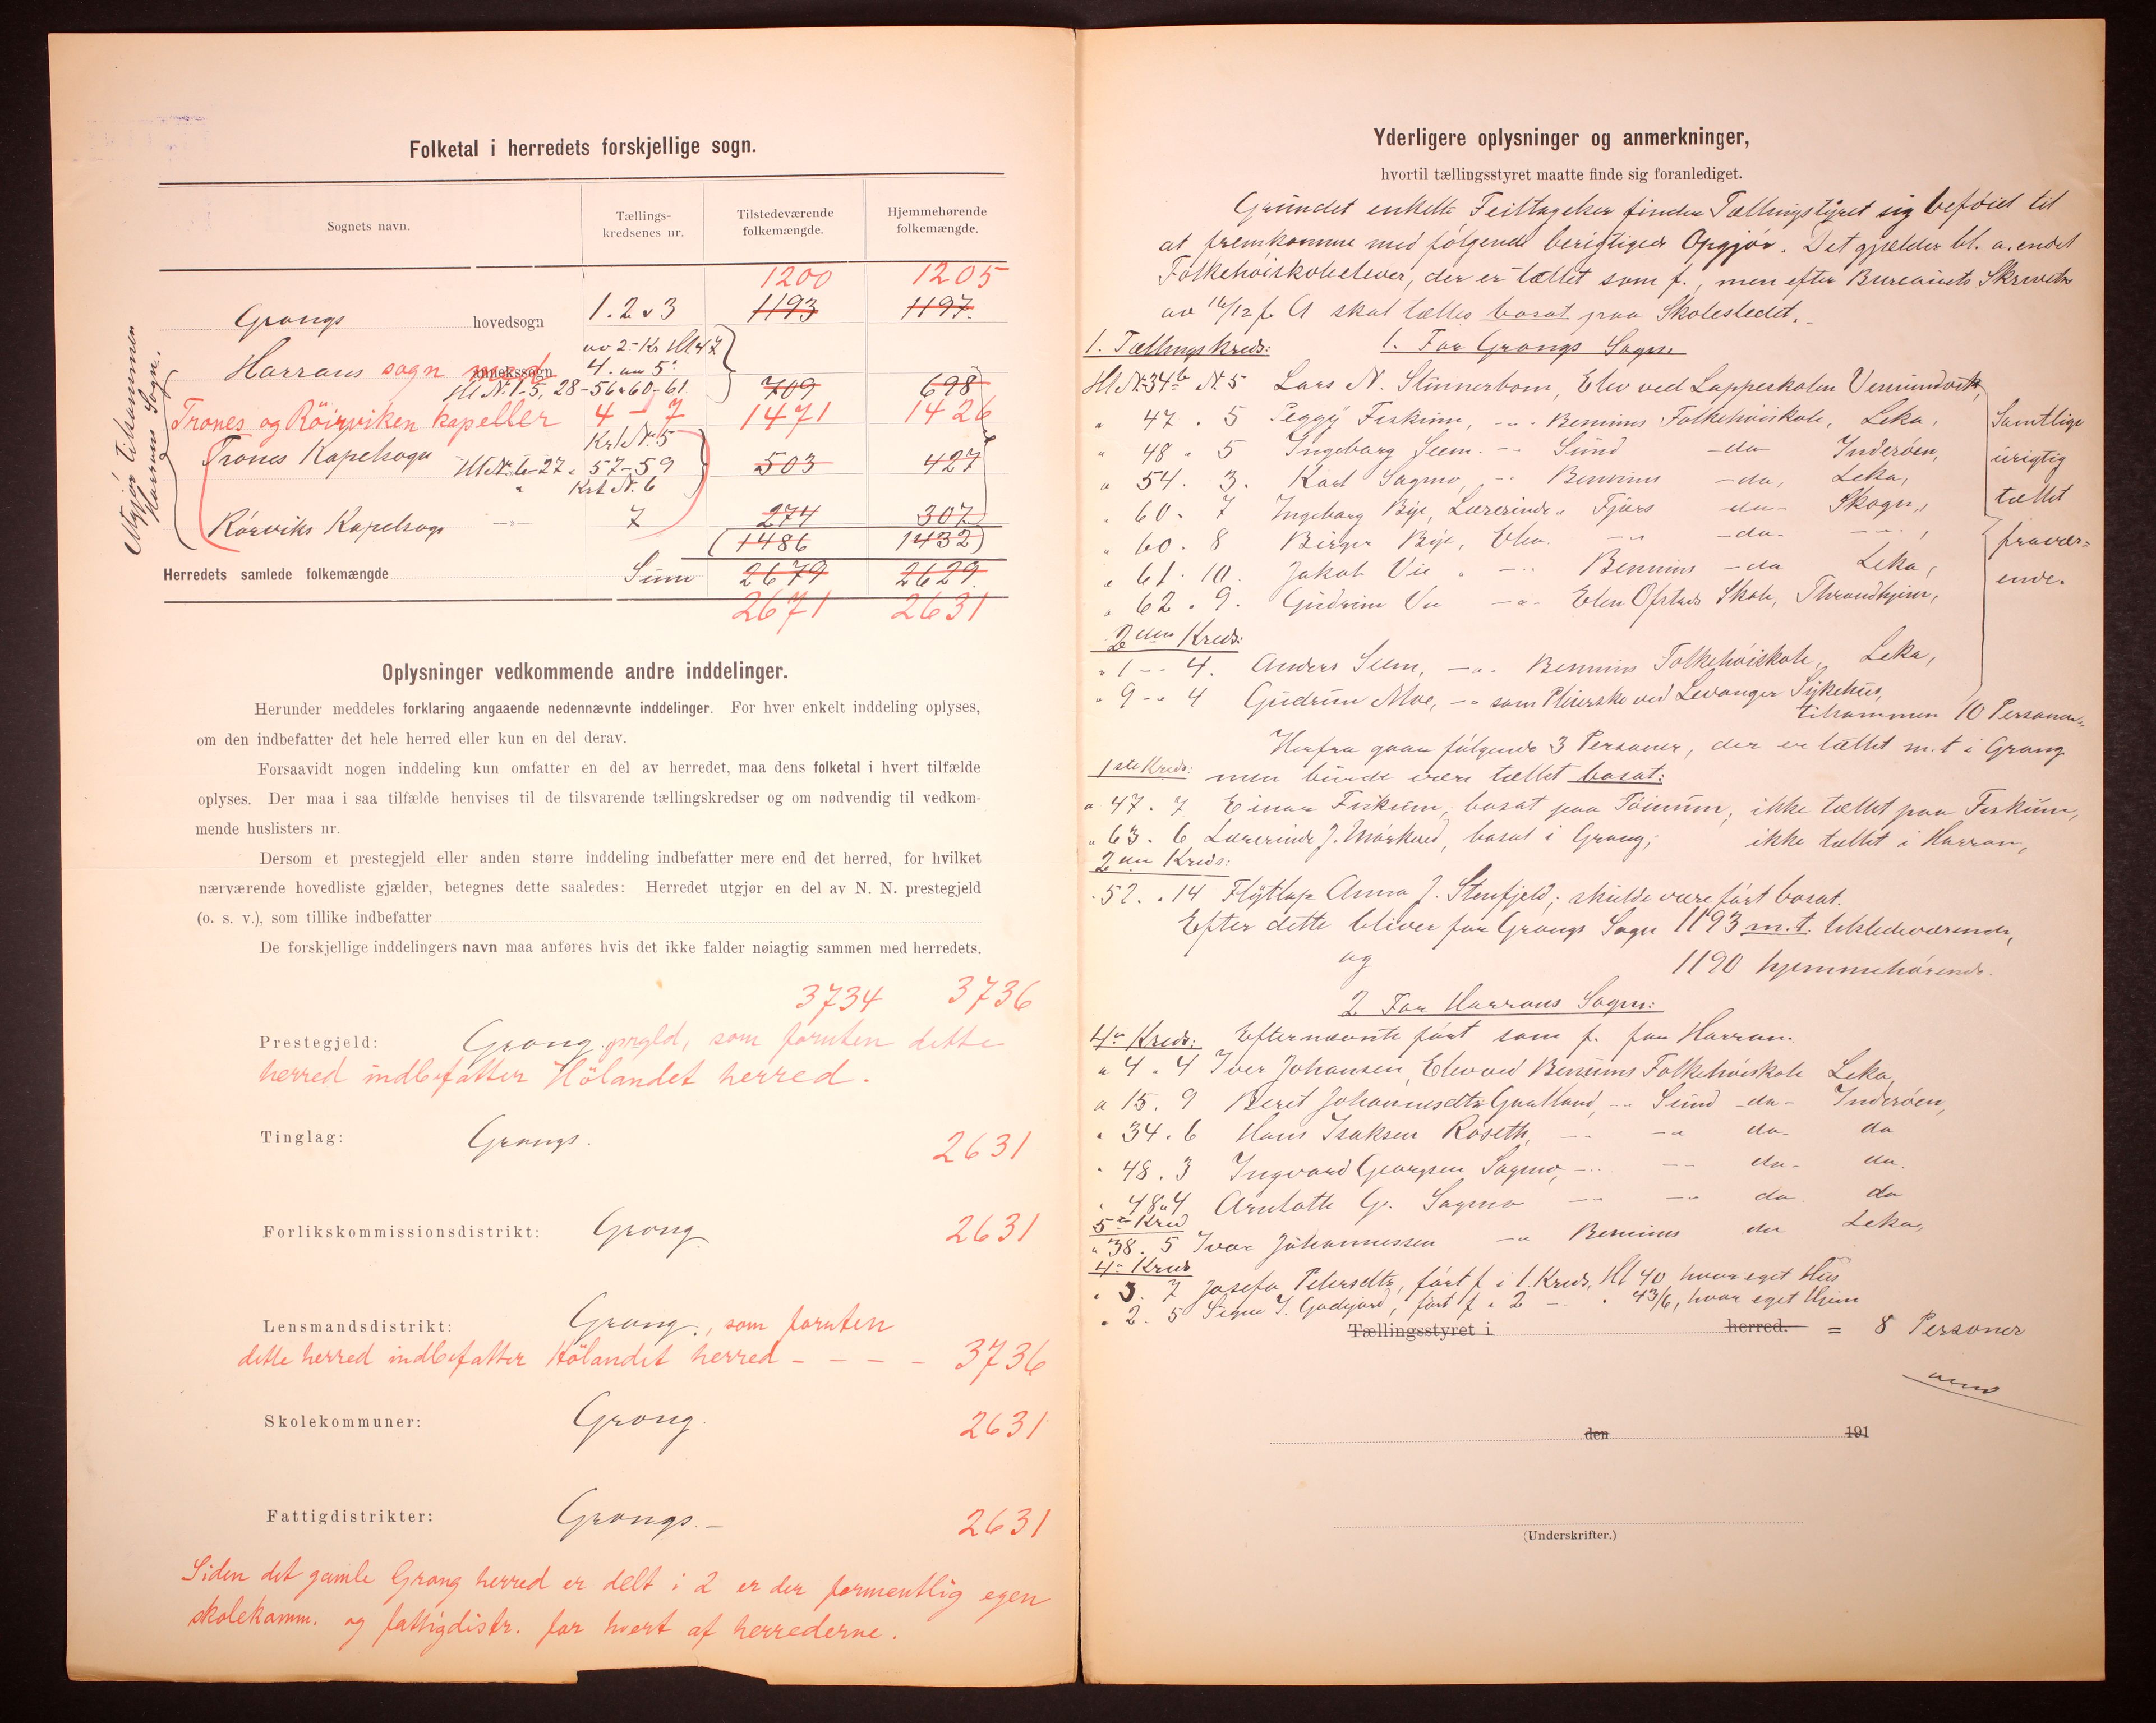 Folketal i herredets forskjellige sogn.
Sognets navn.
Tællings-
kredsenes nr.
Tilstedeværende
folkemængde.
Hjemmehørende
folkemængde.
1200 1205
Grongs hovedsogn 1. 2 & 3 1193 1197
av 2- Kr Hl 47
Harrans sogn med annekssogn 4. 5
Hl Nr. 1-5, 28-56 60-61 709 698
Trones og Röirviken kapeller 4 - 7 1471 1426
Krl Nr. 5
Trones Kapelsogn Hl Nr. 6-27 57-59 503 427
Krl Nr. 6
Rörviks Kapelsogn 7 274 307
1486 1432
Herredets samlede folkemængde Sum 2679 2629
2671 2631
Utgjør tilsammen
Harrans Sogn.
Oplysninger vedkommende andre inddelinger.
Herunder meddeles forklaring angaaende nedennævnte inddelinger. For hver enkelt inddeling oplyses,
om den indbefatter det hele herred eller kun en del derav.
Forsaavidt nogen inddeling kun omfatter en del av herredet, maa dens folketal i hvert tilfælde
oplyses. Der maa i saa tilfælde henvises til de tilsvarende tællingskredser og om nødvendig til vedkom-
mende huslisters nr.
Dersom et prestegjeld eller anden større inddeling indbefatter mere end det herred, for hvilket
nærværende hovedliste gjælder, betegnes dette saaledes: Herredet utgjør en del av N. N. prestegjeld
(o. s. v.), som tillike indbefatter
De forskjellige inddelingers navn maa anføres hvis det ikke falder nøiagtig sammen med herredets.
3734 3736
Prestegjeld: Grong prgld, som foruten dette
herred indbefatter Hölandet herred.
Tinglag: Grongs. 2631
Forlikskommissionsdistrikt: Grong 2631
Lensmandsdistrikt: Grong, som foruten
dette herred indbefatter Hölandet herred - - - - 3736
Skolekommuner: Grong. 2631
Fattigdistrikter: Grongs.- 2631
Siden det gamle Grong herred er delt i 2 er der formentlig egen
skolekomm. og fattigdistr. for hvert af herrederne.
Yderligere oplysninger og anmerkninger,
hvortil tællingsstyret maatte finde sig foranlediget.
Grundet enkelte Feiltagelser finder Tællingstyret sig beføiet til
at fremkomme med følgende berigtigede Opgjør. Det gjælder bl. a. endel
Folkehøiskoleelever, der er tællet som f., men efter Bureauets Skrivelse
av 16/12 f. A skal tælles bosat paa Skolestedet.
1. Tællingskreds: 1. For Grongs Sogn:
Hl Nr 34b Nr. 5 Lars N. Stinnerbom, Elev ved Lappeskolen Vemundvik,
" 47 . 5 Peggy Fiskum, -"- Bennins Folkehøiskole, Leka,
" 48 " 5 Ingeborg Seem -"- Sund -do- Inderøen,
" 54. 3. Karl Sagmo, -"- Bennins -do, Leka,
" 60. 7 Ingeborg Bye, Lærerinde " Fjørs do- Skogn,
" 60. 8 Birger Bye, Elev. -"- -do- -"-,
" 61. 10. Jakob Vie " -"- Bennins -do Leka,
" 62. 9. Gudrun Vie -"- Elen Ofstads Skole, Throndhjem,
Samtlige
urigtig
tællet
fravær-
ende.
2den Kreds:
" 1 -- 4. Anders Seem, -"- Bennins Folkehøiskole, Leka,
" 9 -- 4 Gudrun Moe, -"- som Pleierske ved Levanger Sykehus,
tilsammen 10 Personer.
Herfra gaar følgende 3 Personer, der er tællet m.t i Grong
1ste Kreds: men burde være tællet bosat:
" 47. 7 Einar Fiskum, bosat paa Tömum, ikke tællet paa Fiskum,
" 63. 6 Lærerinde J. Mörkved, bosat i Grong; ikke tællet i Harran,
2den Kreds:
" 52. " 14 Flytlap Anna J. Stenfjeld; skulde være ført bosat.
Efter dette bliver for Grongs Sogn 1193 m.t. tilstedeværende,
og 1190 hjemmehørende.
2. For Harrans Sogn:
4de Kreds: Efternævnte ført som f. fra Harran.
" 4 " 4 Iver Johansen, Elev ved Bennins Folkehøiskole Leka,
" 15. 9 Berit Johannesdtr Gartland, -"- Sund -do- Inderøen,
" 34. 6 Hans Isaksen Røseth, -"- -"- do- do
" 48. 3 Ingvard Georgsen Sagmo, -"- -"- do- do.
" 48 " 4 Arnlotte G. Sagmo -"- -"- do do
5te Kreds
" 38. 5 Ivar Johannessen -"- Bennins do Leka,
4de Kreds
" 3. 7 Josefa Petersdtr, ført f i 1. Kreds, Hl 40, hvor eget Hus
" 2. 5 Signe J. Godejord, ført f " 2 - " 43/6, hvor eget Hjem
Tællingsstyret i herred. = 8 Personer
den 191
(Underskrifter.)